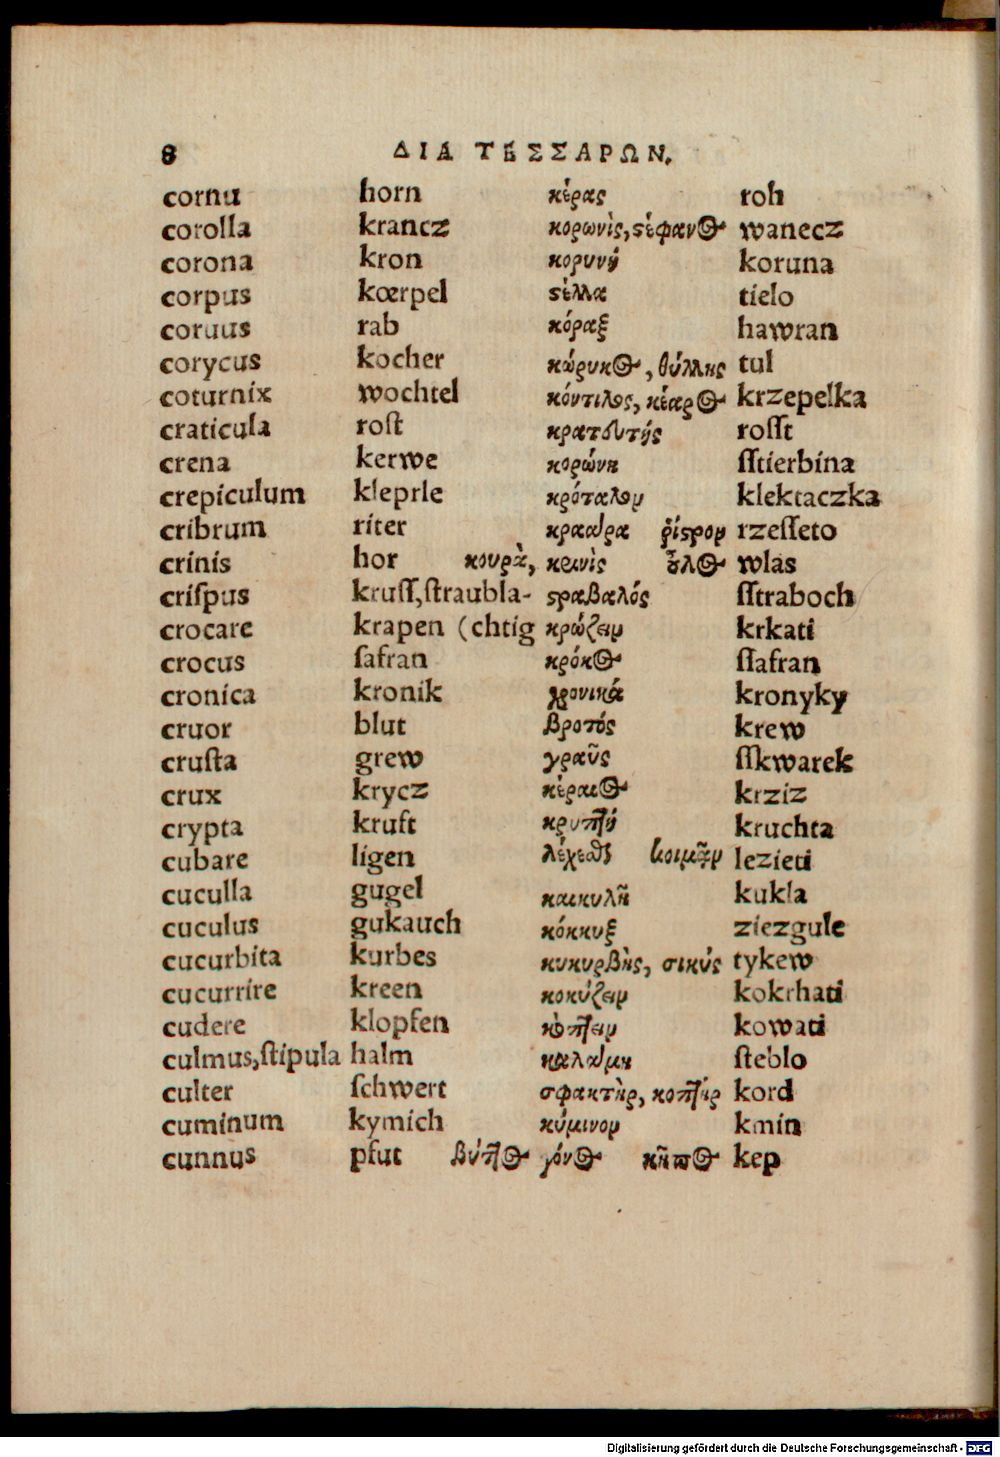 8 ΔΙΑ ΤΕΣΣΑΡΩΝ.
cornu horn κέρας roh
corolla krancz κορωνὶς, ϛέφανος wanecz
corona kron κορυνή koruna
corpus kœrpel ϛέλλα tielo
coruus rab κόραξ hawran
corycus kocher κώρυκος, θύλλης tul
coturnix wochtel κόντιλος, κέαρος krzepelka
craticula roſt κρατευτής roſſt
crena kerwe κορώνη ſſtierbina
crepiculum kleprle κρόταλον klektaczka
cribrum riter κραάρα ῥίϛρον rzeſſeto
crinis hor κουρὰ, κωνὶς οὖλος wlas
criſpus kruſſ,ſtraubla- ϛραβαλός ſſtraboch
crocare krapen (chtig κρώζειν krkati
crocus ſafran κρόκος ſſafran
cronica kronik χρονικά kronyky
cruor blut βροτός krew
cruſta grew γραῦς ſſkwarek
crux krycz κέραιος krziz
crypta kruft κρυπτή kruchta
cubare ligen λέχεσθαι κοιμᾶν lezieti
cuculla gugel καικυλῆ kukla
cuculus gukauch κόκκυξ ziezgule
cucurbita kurbes κυκυρβὴς, σικύς tykew
cucurrire kreen κοκύζειν kokrhati
cudere klopfen κόπτειν kowati
culmus,ſtipula halm καλάμη steblo
culter ſchwert σφακτὴρ, κοπτήρ kord
cuminum kymich κύμινον kmin
cunnus pfut βύττος γόνος κῆπος kep
Digitalisierung gefördert durch die Deutsche Forschungsgemeinschaft - DFG